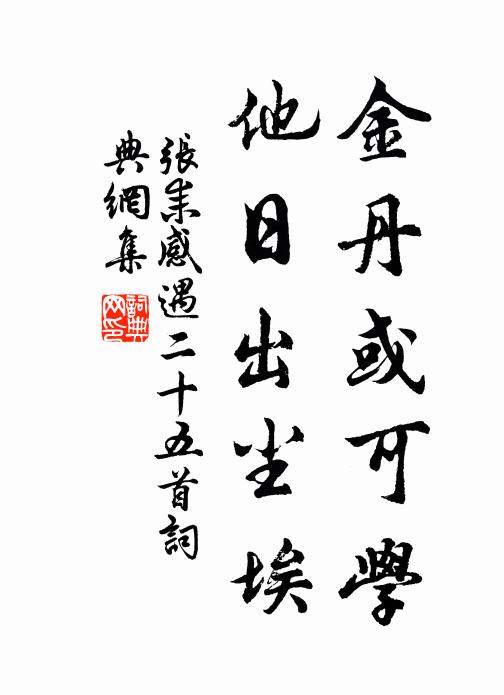 金丹或可學
他日出尘埃
張耒感遇二十五首詞
典網集
詞典
网印